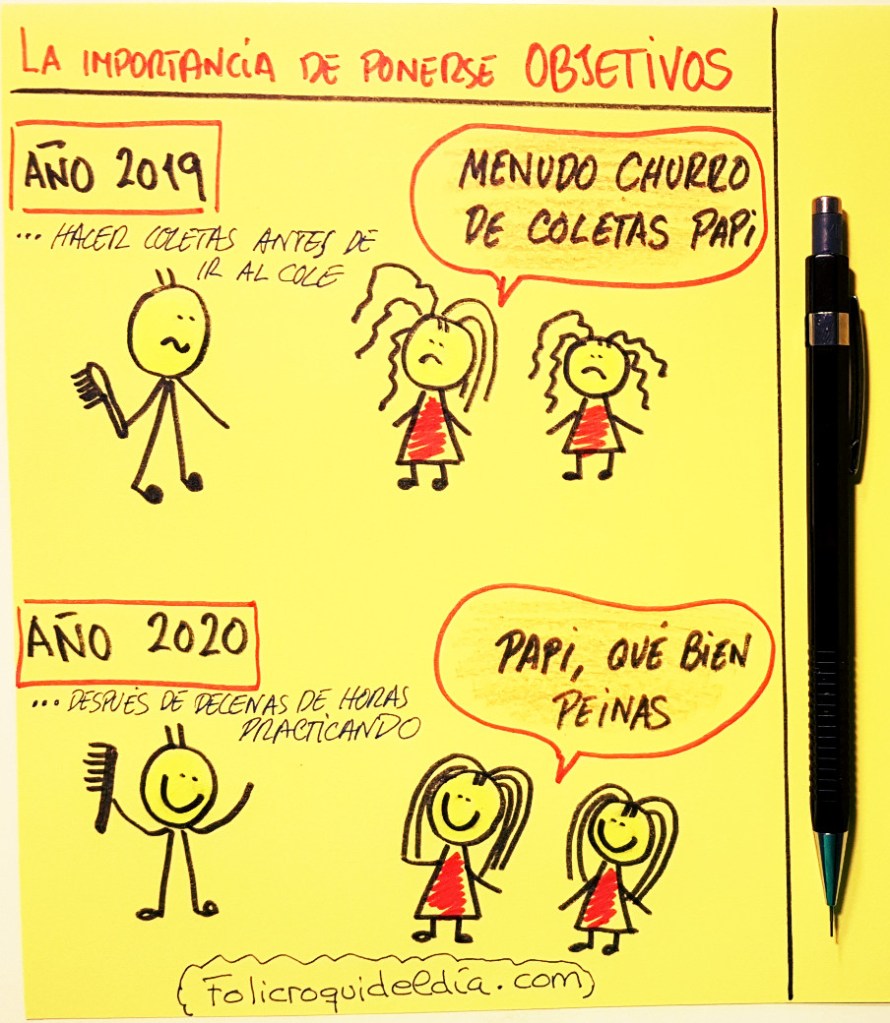 LA IMPORTANCIA DE PONERSE OBJETIVOS
AÑO 2019
... HACER COLETAS ANTES DE
IR AL COLE
MENUDO CHURRO
DE COLETAS PAPI
AÑO 2020
... DESPUÉS DE DECENAS DE HORAS
PRACTICANDO
PAPI, QUÉ BIEN
PEINAS
Folicroquideldía.com